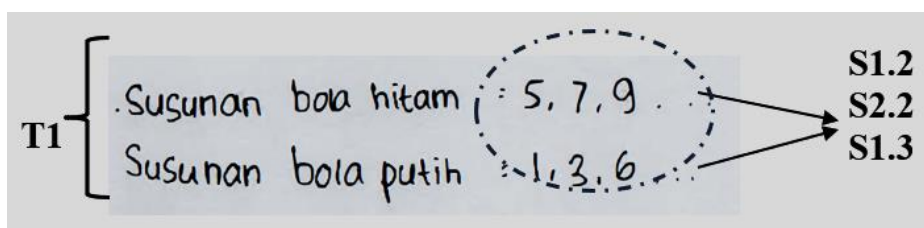 T1
.Susunan bola hitam : 5, 7, 9 ...
Susunan bola putih : 1, 3, 6 ...
S1.2
S2.2
S1.3